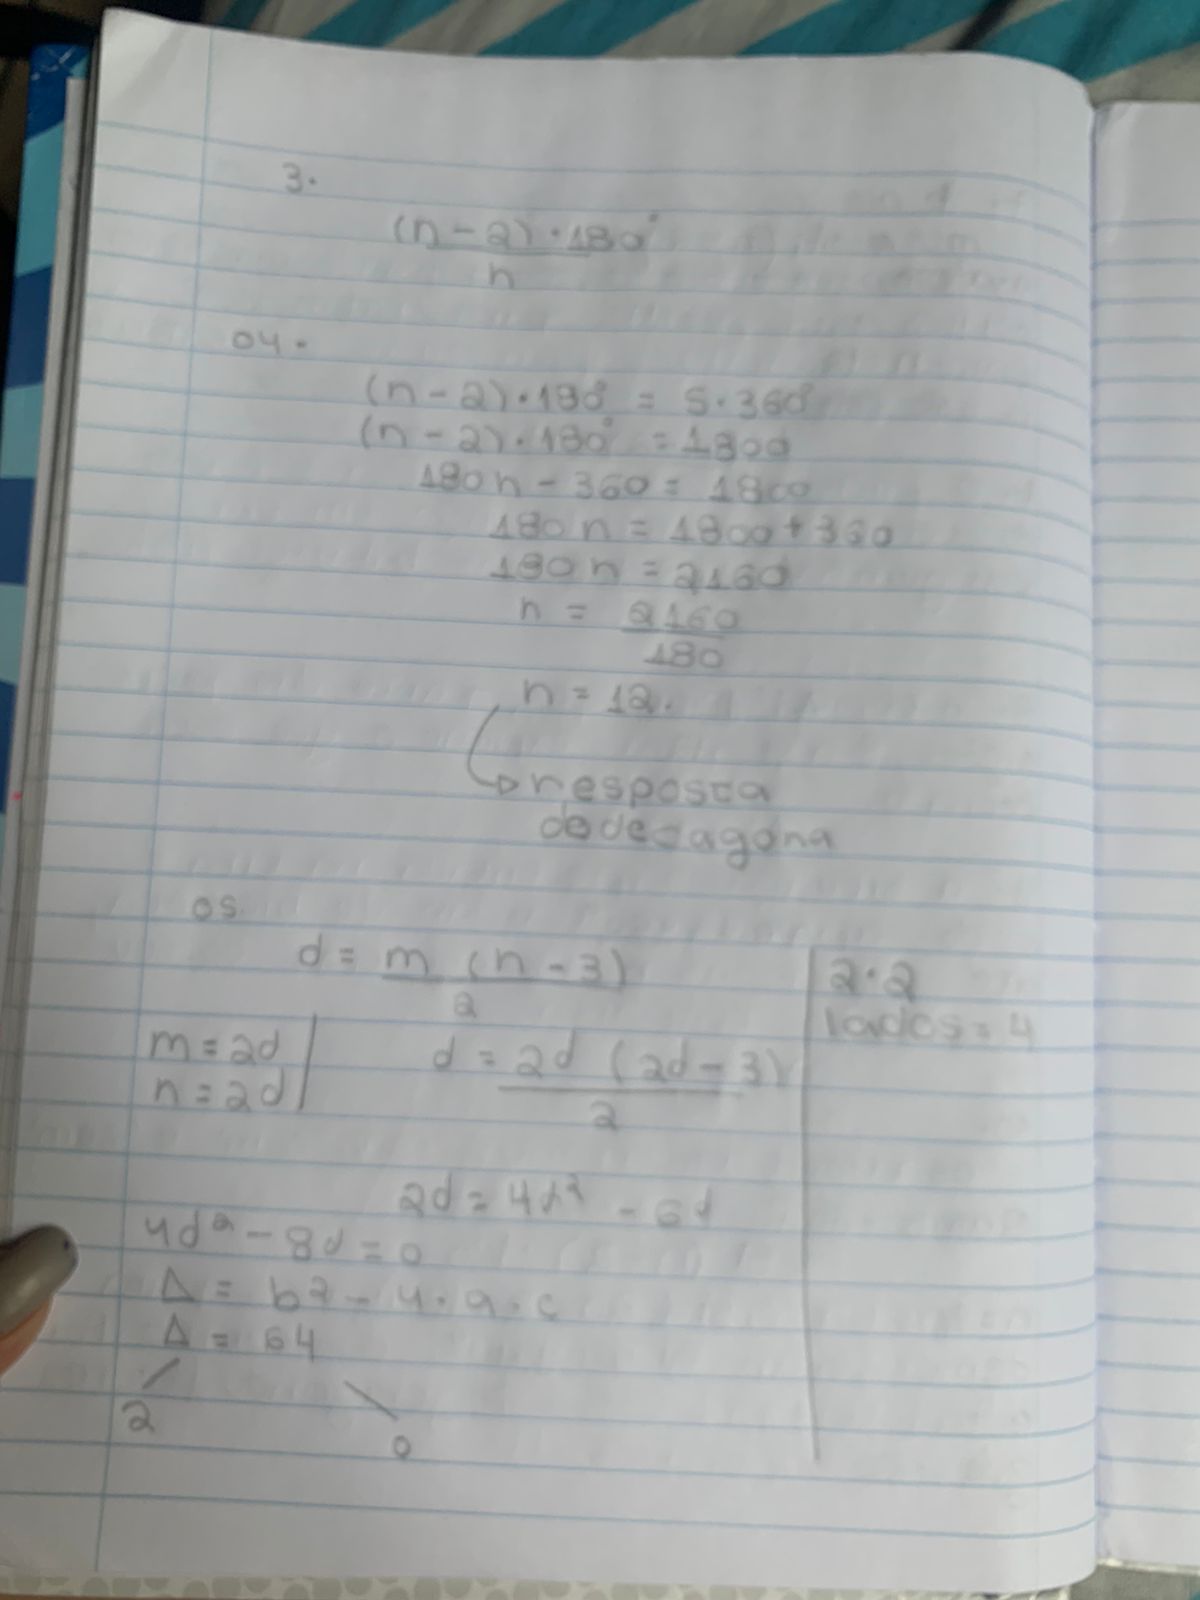 3.
(n-2).180°
n
04.
(n-2).180° = 5.360°
(n-2).180° = 1800
180n - 360 = 1800
180n = 1800 + 360
180n = 2160
n = 2160
180
n = 12.
resposta
dodecagono
05.
d = m (n-3)
2
m = 2d
n = 2d
d = 2d (2d-3)
2
2d = 4d² - 6d
4d² - 8d = 0
Δ = b2 - 4.a.c
Δ = 64
2
0
2.2
lados = 4